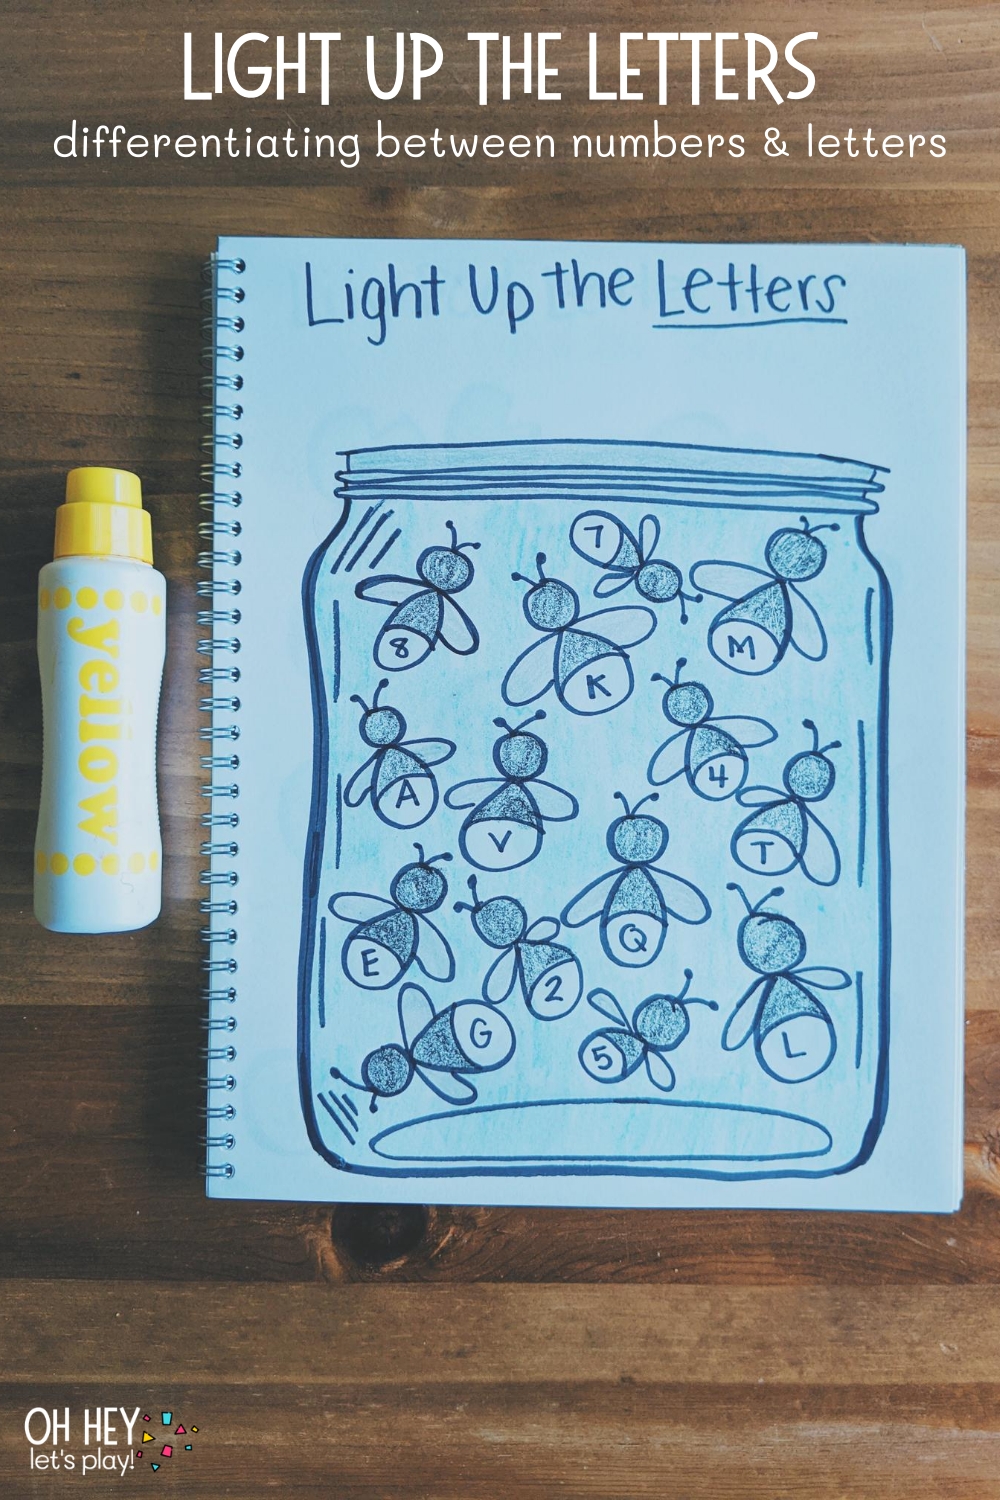 LIGHT UP THE LETTERS
differentiating between numbers & letters
Light Up the Letters
yellow
7
8
K
M
A
V
4
T
E
2
Q
G
5
L
OH HEY
let's play!